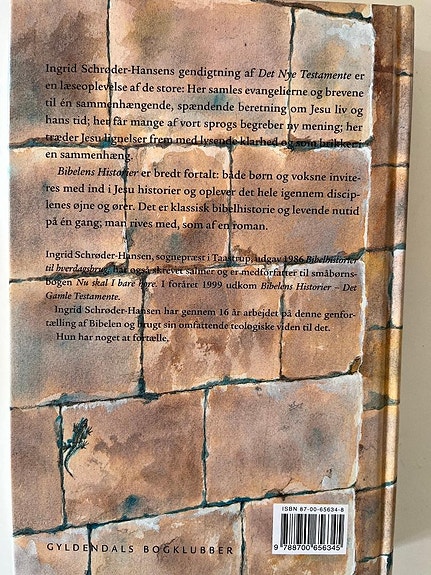 Ingrid Schrøder-Hansens gendigtning af Det Nye Testamente er
en læseoplevelse af de store: Her samles evangelierne og brevene
til én sammenhængende, spændende beretning om Jesu liv og
hans tid; her får mange af vort sprogs begreber ny mening; her
træder Jesu lignelser frem med lysende klarhed og som brikker i
en sammenhæng.
Bibelens Historier er bredt fortalt: både børn og voksne invite-
res med ind i Jesu historier og oplever det hele igennem discip-
lenes øjne og ører. Det er klassisk bibelhistorie og levende nutid
på én gang; man rives med, som af en roman.
Ingrid Schrøder-Hansen, sognepræst i Taastrup, udgav 1986 Bibelhistorier
til hverdagsbrug, har også skrevet salmer og er medforfatter til småbørns-
bogen Nu skal I bare høre. I foråret 1999 udkom Bibelens Historier – Det
Gamle Testamente.
Ingrid Schrøder-Hansen har gennem 16 år arbejdet på denne genfor-
tælling af Bibelen og brugt sin omfattende teologiske viden til det.
Hun har noget at fortælle.
ISBN 87-00-65634-8
9 788700 656345
GYLDENDALS BOGKLUBBER